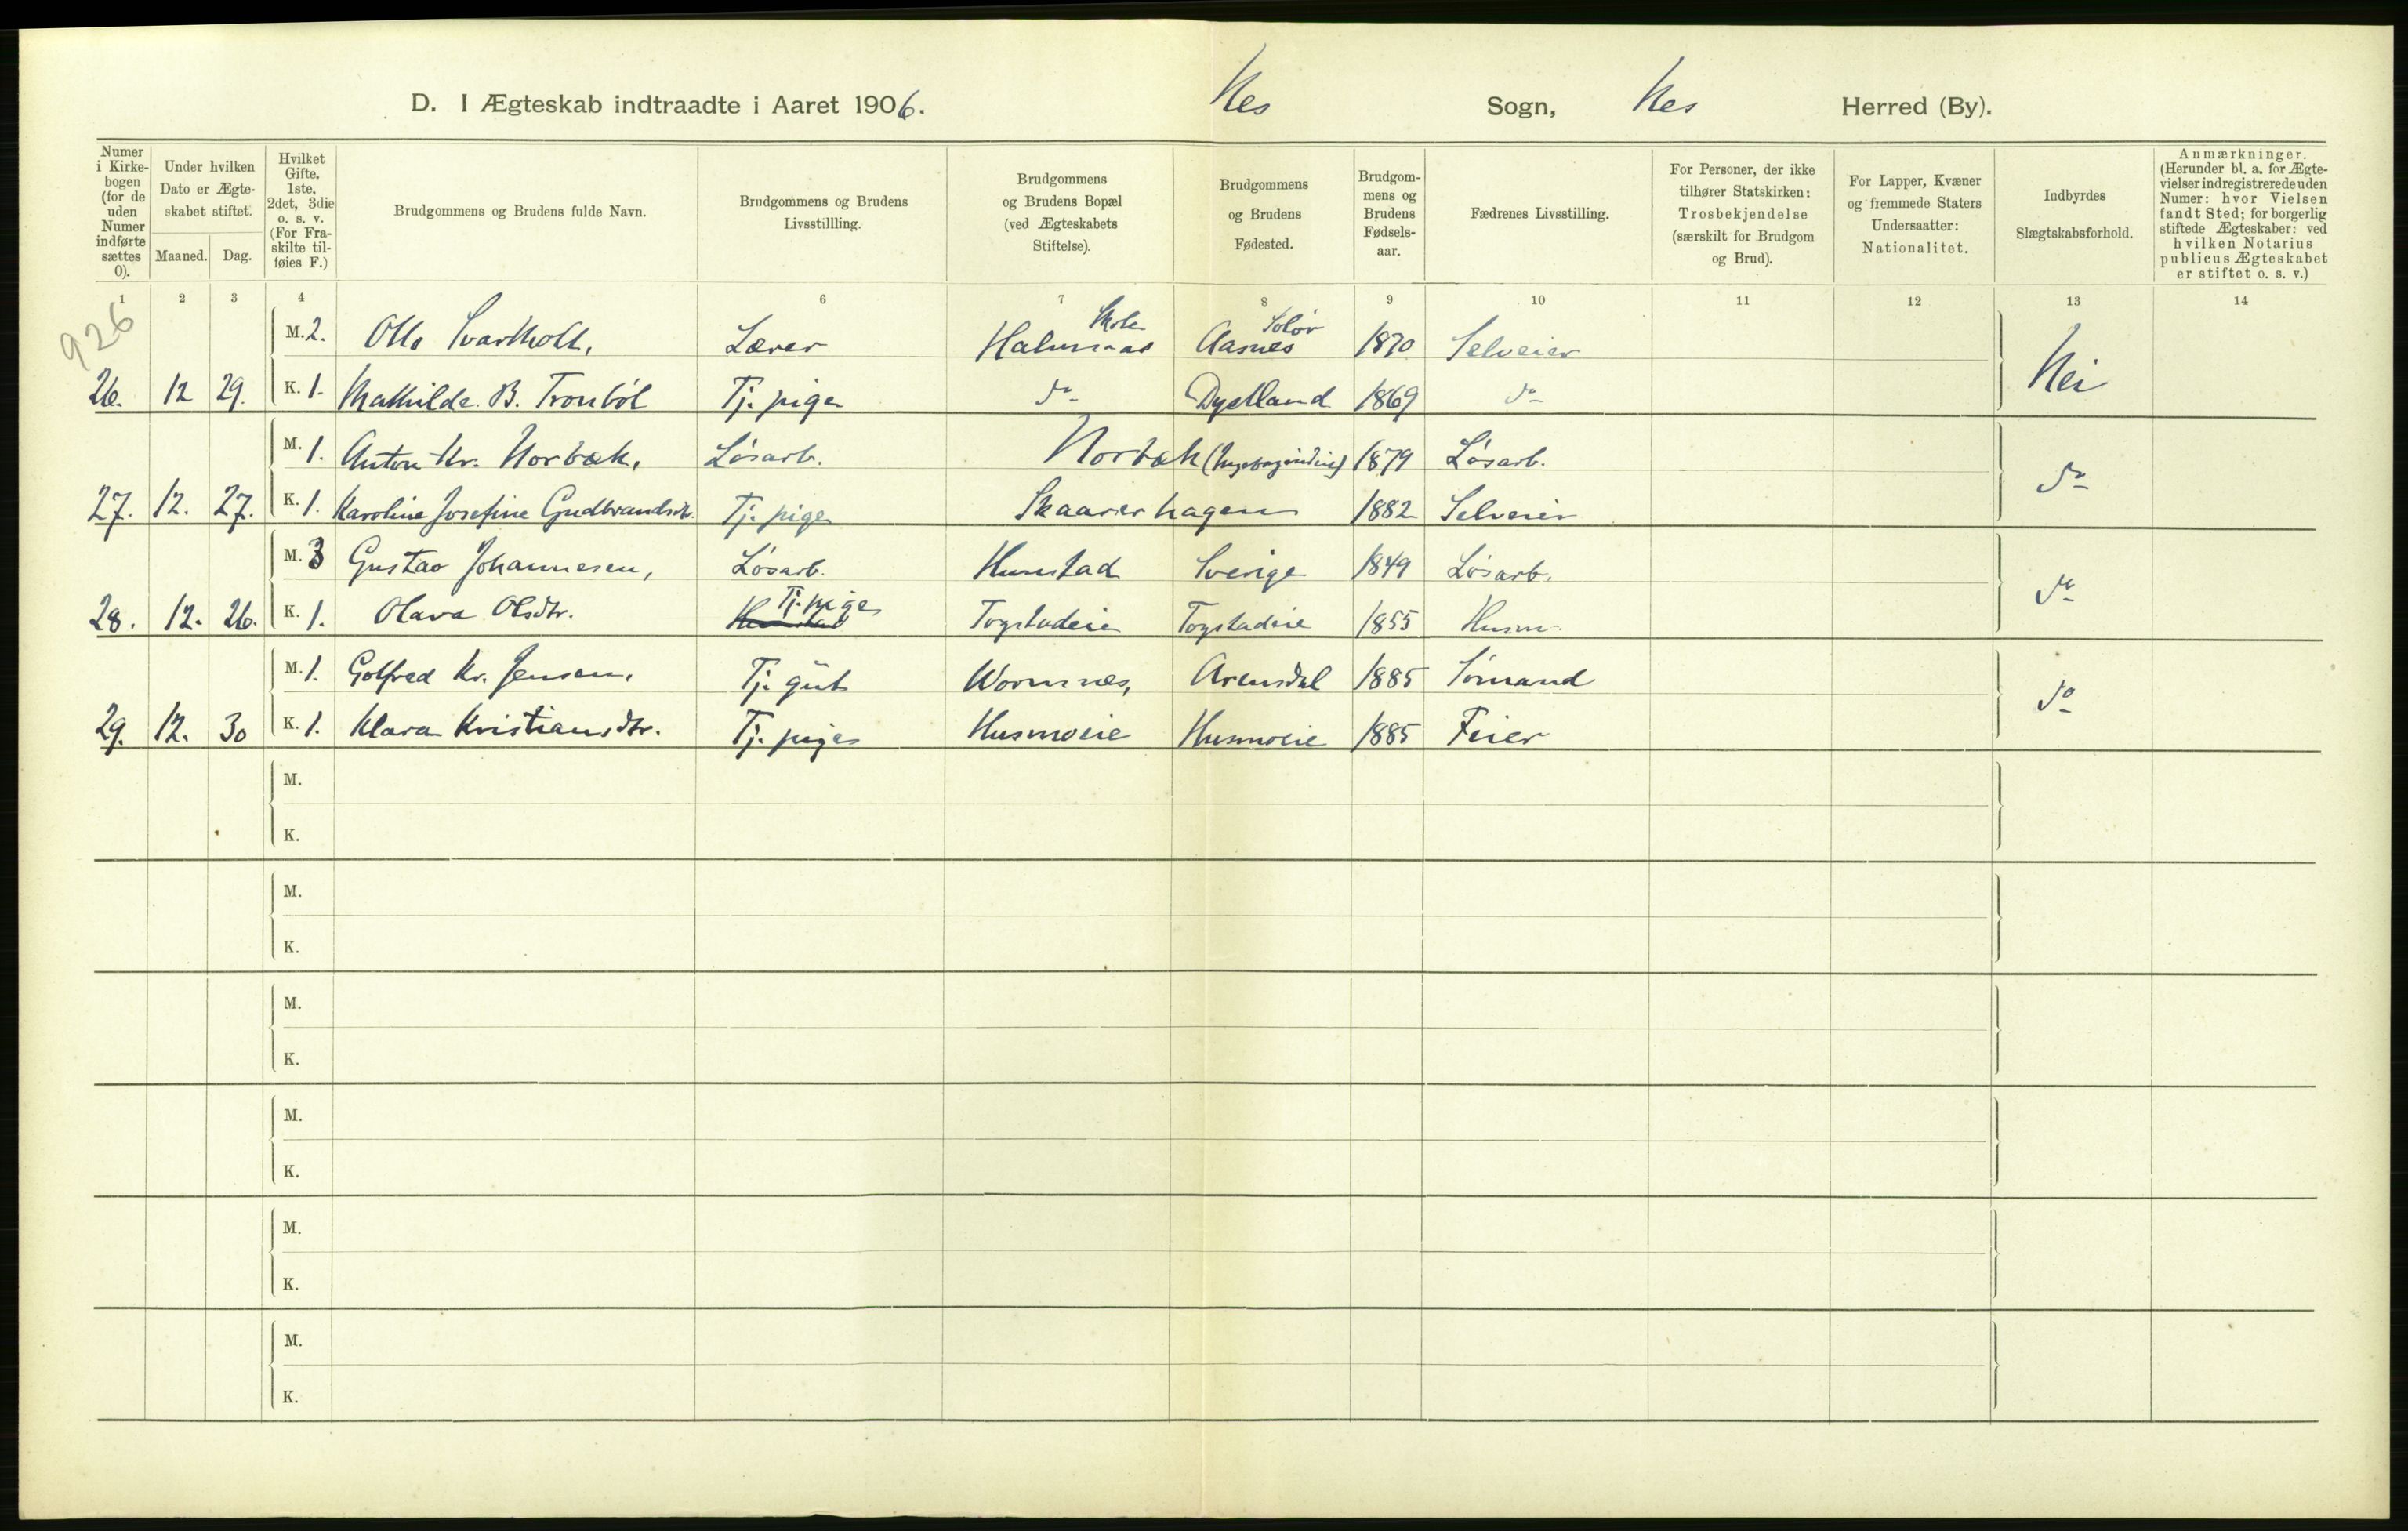 D. I Ægteskab indtraadte i Aaret 1906. Nes Sogn, Nes Herred (By).
Numer i Kirkebogen (for de uden Numer indførte sættes 0).
Under hvilken Dato er Ægteskabet stiftet. Maaned. Dag.
Hvilket Gifte. 1ste, 2det, 3die o. s. v. (For Fraskilte tilføies F.)
Brudgommens og Brudens fulde Navn.
Brudgommens og Brudens Livsstillling.
Brudgommens og Brudens Bopæl (ved Ægteskabets Stiftelse).
Brudgommens og Brudens Fødested.
Brudgommens og Brudens Fødselsaar.
Fædrenes Livsstilling.
For Personer, der ikke tilhører Statskirken: Trosbekjendelse (særskilt for Brudgom og Brud).
For Lapper, Kvæner og fremmede Staters Undersaatter: Nationalitet.
Indbyrdes Slægtskabsforhold.
Anmærkninger. (Herunder bl. a. for Ægtevielser indregistrerede uden Numer: hvor Vielsen fandt Sted; for borgerlig stiftede Ægteskaber: ved hvilken Notarius publicus Ægteskabet er stiftet o. s. v.)
1 2 3 4 6 7 8 9 10 11 12 13 14
926
M. 2. Otto Svartholt, Lærer Skole Aasnes Solør 1870 Selveier
26. 12 29. K. 1. Mathilde B. Tronbøl Tj. pige do Dystland 1869 do Nei
M. 1. Anton Kr. Norbæk, Løsarb. Norbæk 1879 Løsarb.
27. 12. 27. K. 1. Karoline Josefine Gudbrandsdtr. Tj. pige Skaarerhagen 1882 Selveier do
M. 3 Gustav Johannesen, Løsarb. Hunstad Sverige 1849 Løsarb.
28. 12. 26. K. 1. Olava Olsdtr. Hunstad Tj. pige Togstadeie Togstadeie 1855 Husm. do
M. 1. Golfred Kr. Jensen, Tj. gut Wormnes, Arendal 1885 Sømand
29. 12. 30 K. 1. Klara Kristiansdtr. Tj. pige Husmoeie Husmoeie 1885 Feier do
M.
K.
M.
K.
M.
K.
M.
K.
M.
K.
M.
K.